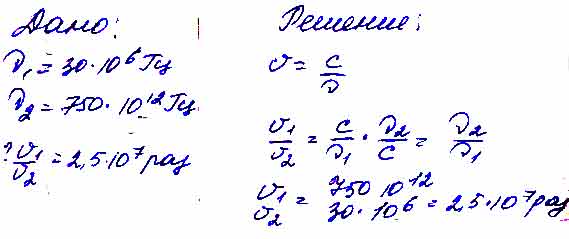 Дано:
ν₁ = 30·10⁶ Гц
ν₂ = 750·10¹² Гц
? υ₁/υ₂ = 2,5·10⁷ раз
Решение:
υ = c/ν
υ₁/υ₂ = c/ν₁ · ν₂/c = ν₂/ν₁
υ₁/υ₂ = 750 10¹²/30·10⁶ = 2,5·10⁷ раз